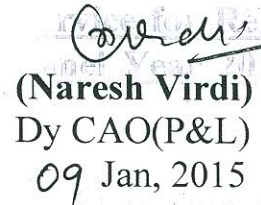 (Naresh Virdi)
Dy CAO(P&L)
09 Jan, 2015